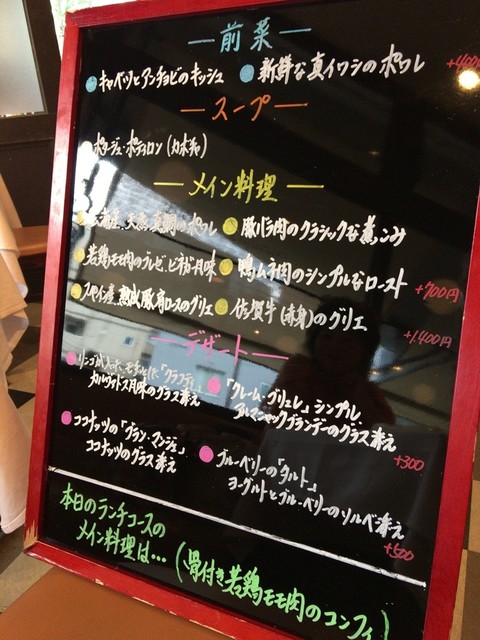 ー前菜ー
キャベツとアンチョビのキッシュ
新鮮な真イワシのポワレ +400
ースープー
ポタージュ・ポティロン (カボチャ)
ーメイン料理ー
天然真鯛のポワレ
豚バラ肉のクラシックな煮こみ
若鶏モモ肉のブレゼ、ビネガー風味
鴨ムネ肉のシンプルなロースト +700円
スペイン産 熟成豚肩ロースのグリエ
佐賀牛(赤身)のグリエ +1,400円
ーデザートー
リンゴが入った、モチっとした「クラフティ」
カルヴァドス風味のグラス添え
「クレーム・ブリュレ」シンプル
アルマニャックブランデーのグラス添え +300
ココナッツの「ブラン・マンジェ」
ココナッツのグラス添え
ブルーベリーの「タルト」
ヨーグルトとブルーベリーのソルベ添え +500
本日のランチコースの
メイン料理は…(骨付き若鶏モモ肉のコンフィ)